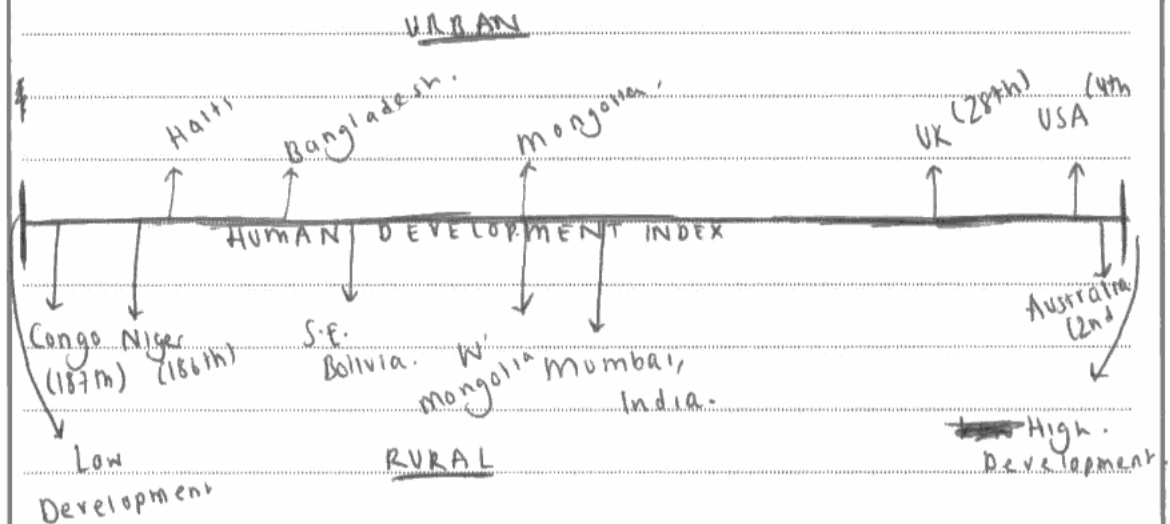 URBAN
Haiti
Bangladesh.
Mongolia.
UK (28th)
USA (4th
HUMAN DEVELOPMENT INDEX
Congo
(187th)
Niger
(186th)
S.E.
Bolivia.
W'
Mongolia
Mumbai,
India.
Australia
(2nd
Low
Development
RURAL
High.
Development